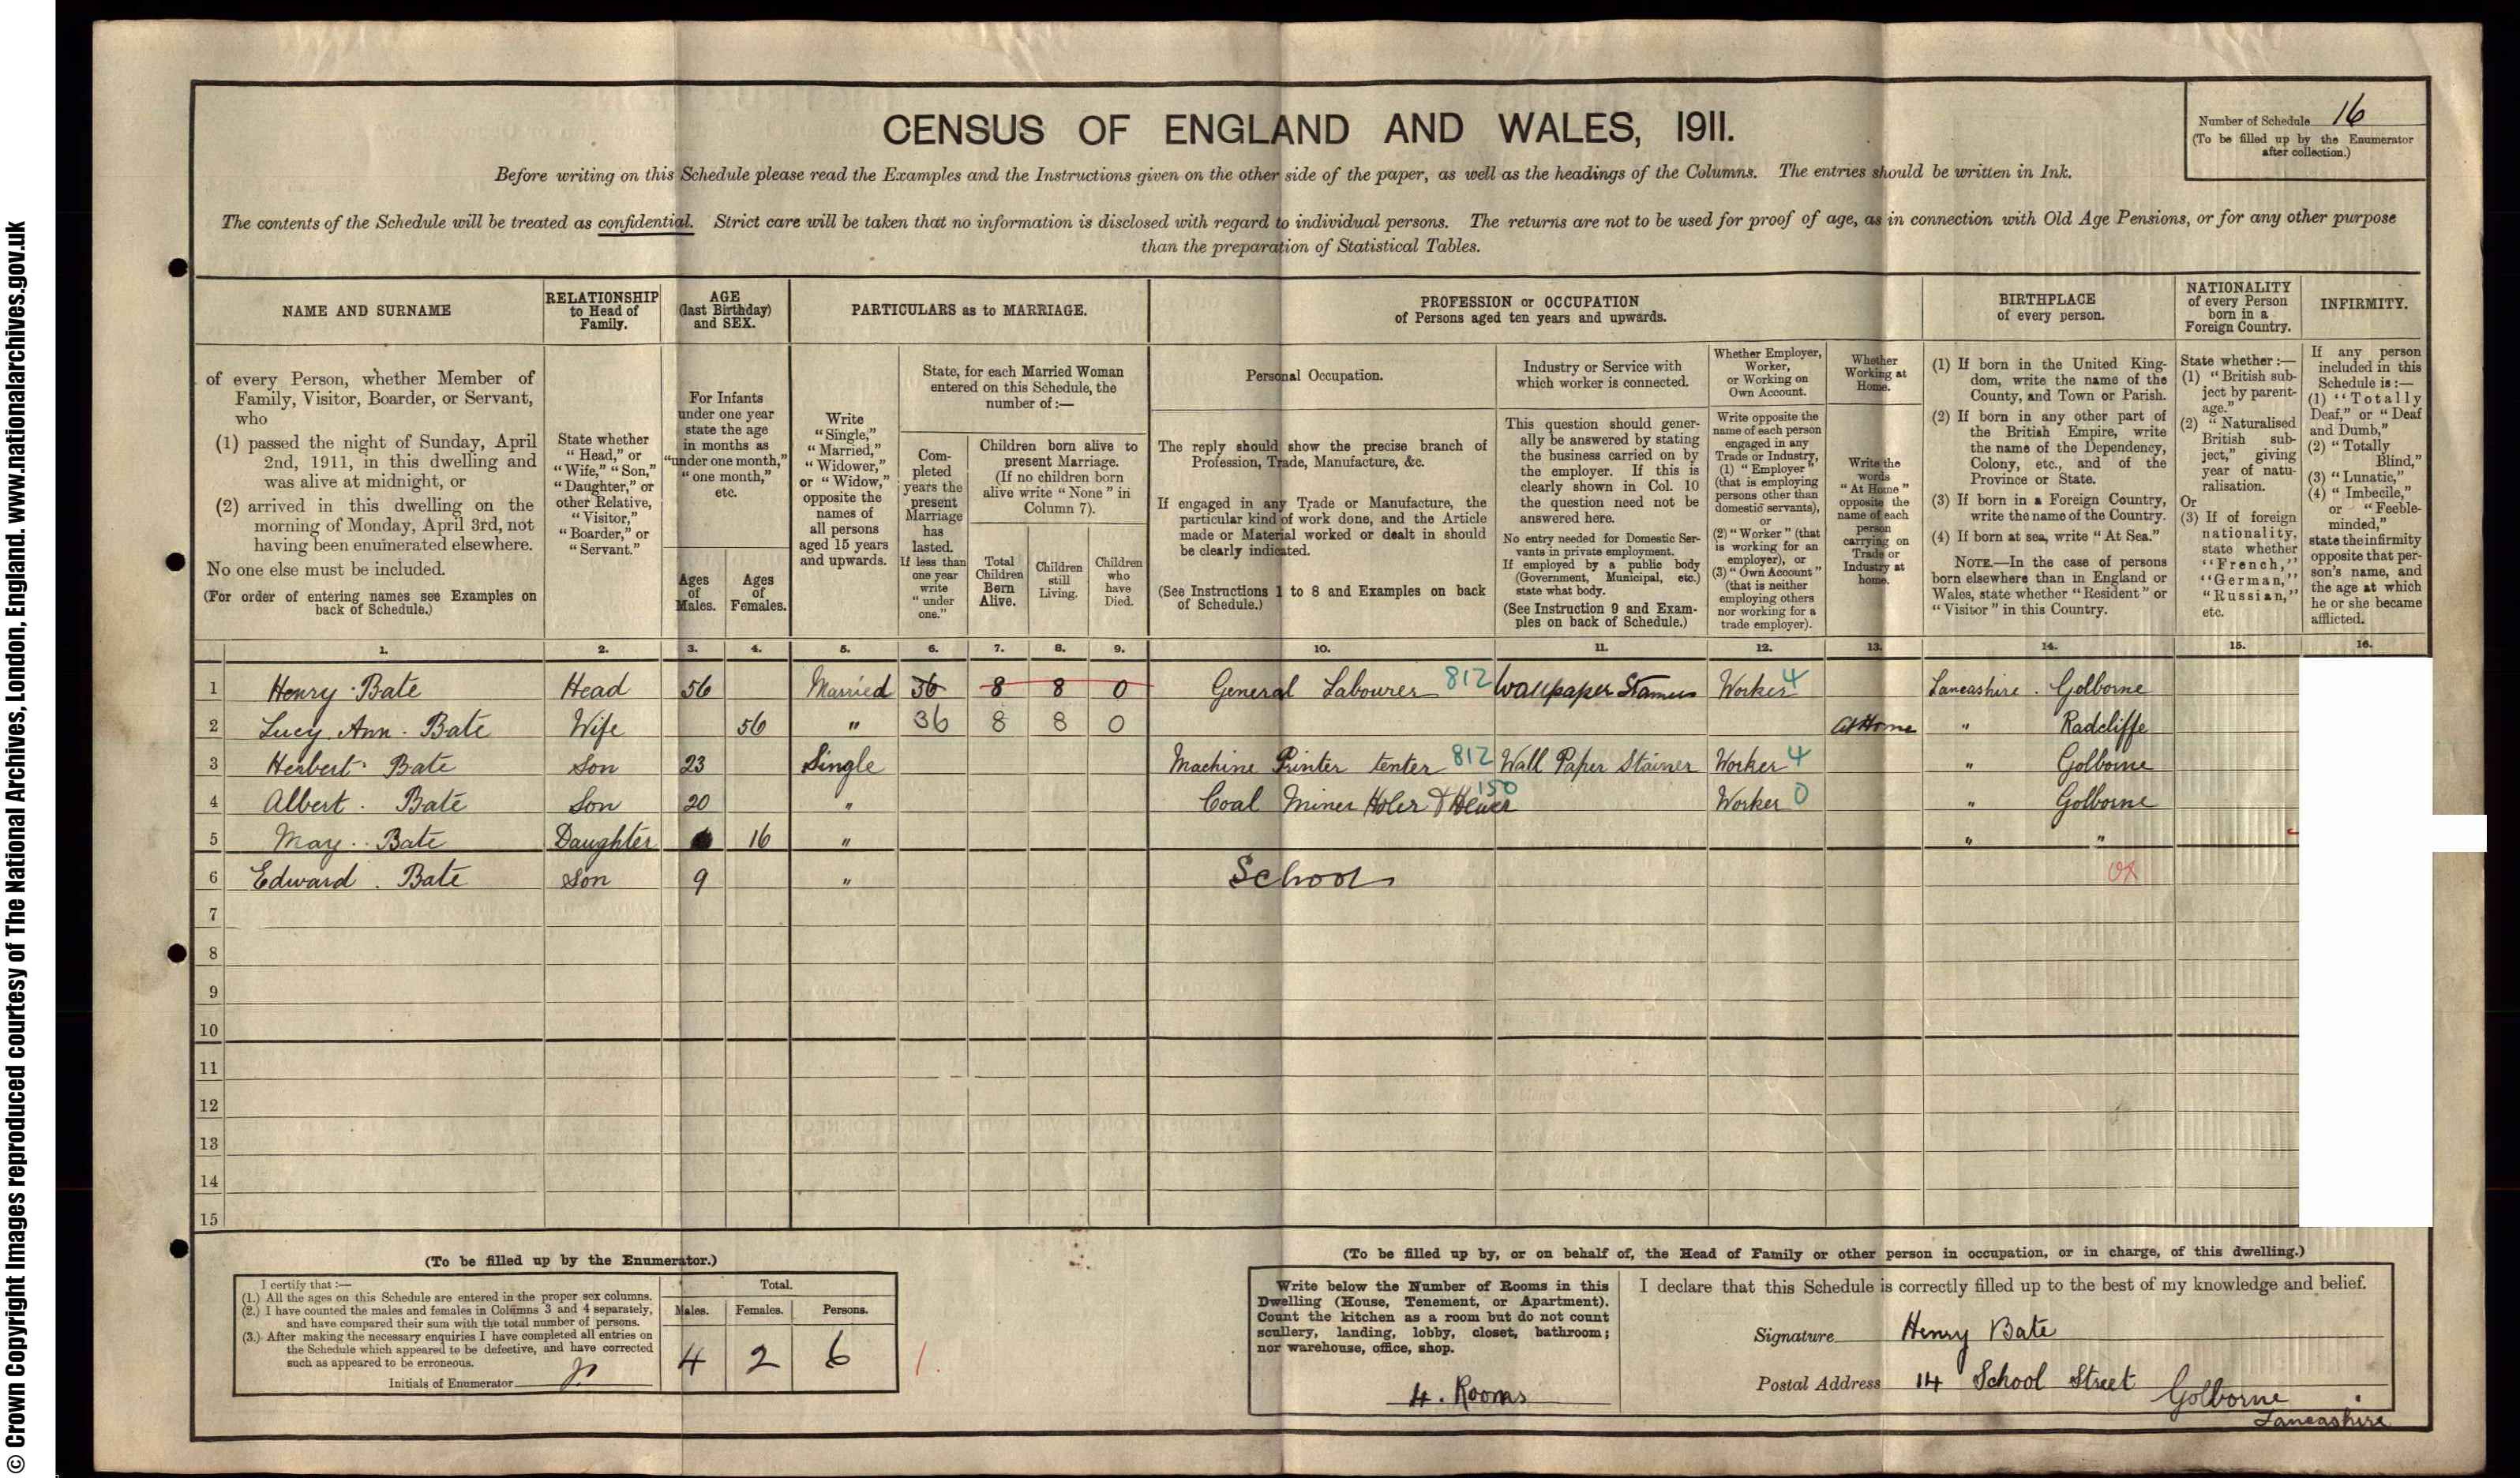 © Crown Copyright Images reproduced courtesy of The National Archives, London, England. www.nationalarchives.gov.uk
CENSUS OF ENGLAND AND WALES, 1911.
Number of Schedule 16
(To be filled up by the Enumerator
after collection.)
Before writing on this Schedule please read the Examples and the Instructions given on the other side of the paper, as well as the headings of the Columns. The entries should be written in Ink.
The contents of the Schedule will be treated as confidential. Strict care will be taken that no information is disclosed with regard to individual persons. The returns are not to be used for proof of age, as in connection with Old Age Pensions, or for any other purpose
than the preparation of Statistical Tables.
NAME AND SURNAME
of every Person, whether Member of
Family, Visitor, Boarder, or Servant,
who
(1) passed the night of Sunday, April
2nd, 1911, in this dwelling and
was alive at midnight, or
(2) arrived in this dwelling on the
morning of Monday, April 3rd, not
having been enumerated elsewhere.
No one else must be included.
(For order of entering names see Examples on
back of Schedule.)
RELATIONSHIP
to Head of
Family.
State whether
"Head," or
"Wife," "Son,"
"Daughter," or
other Relative,
"Visitor,"
"Boarder," or
"Servant."
AGE
(last Birthday)
and SEX.
For Infants
under one year
state the age
in months as
"under one month,"
"one month,"
etc.
Ages
of
Males.
Ages
of
Females.
PARTICULARS as to MARRIAGE.
Write
"Single,"
"Married,"
"Widower,"
or "Widow,"
opposite the
names of
all persons
aged 15 years
and upwards.
State, for each Married Woman
entered on this Schedule, the
number of:—
Com-
pleted
years the
present
Marriage
has
lasted.
If less than
one year
write
"under
one."
Children born alive to
present Marriage.
(If no children born
alive write "None" in
Column 7).
Total
Children
Born
Alive.
Children
still
Living.
Children
who
have
Died.
PROFESSION or OCCUPATION
of Persons aged ten years and upwards.
Personal Occupation.
The reply should show the precise branch of
Profession, Trade, Manufacture, &c.
If engaged in any Trade or Manufacture, the
particular kind of work done, and the Article
made or Material worked or dealt in should
be clearly indicated.
(See Instructions 1 to 8 and Examples on back
of Schedule.)
Industry or Service with
which worker is connected.
This question should gener-
ally be answered by stating
the business carried on by
the employer. If this is
clearly shown in Col. 10
the question need not be
answered here.
No entry needed for Domestic Ser-
vants in private employment.
If employed by a public body
(Government, Municipal, etc.)
state what body.
(See Instruction 9 and Exam-
ples on back of Schedule.)
Whether Employer,
Worker,
or Working on
Own Account.
Write opposite the
name of each person
engaged in any
Trade or Industry,
(1) "Employer"
(that is employing
persons other than
domestic servants),
or
(2) "Worker" (that
is working for an
employer), or
(3) "Own Account"
(that is neither
employing others
nor working for a
trade employer).
Whether
Working at
Home.
Write the
words
"At Home"
opposite the
name of each
person
carrying on
Trade or
Industry at
home.
BIRTHPLACE
of every person.
(1) If born in the United King-
dom, write the name of the
County, and Town or Parish.
(2) If born in any other part of
the British Empire, write
the name of the Dependency,
Colony, etc., and of the
Province or State.
(3) If born in a Foreign Country,
write the name of the Country.
(4) If born at sea, write "At Sea."
NOTE.—In the case of persons
born elsewhere than in England or
Wales, state whether "Resident" or
"Visitor" in this Country.
NATIONALITY
of every Person
born in a
Foreign Country.
State whether:—
(1) "British sub-
ject by parent-
age."
(2) "Naturalised
British sub-
ject," giving
year of natu-
ralisation.
Or
(3) If of foreign
nationality,
state whether
"French,"
"German,"
"Russian,"
etc.
INFIRMITY.
If any person
included in this
Schedule is:—
(1) "Totally
Deaf," or "Deaf
and Dumb,"
(2) "Totally
Blind,"
(3) "Lunatic,"
(4) "Imbecile,"
or "Feeble-
minded,"
state the infirmity
opposite that per-
son's name, and
the age at which
he or she became
afflicted.
1. 2. 3. 4. 5. 6. 7. 8. 9. 10. 11. 12. 13. 14. 15. 16.
1 Henry Bate Head 56 Married 36 8 8 0 General Labourer 812 Wallpaper Worker 4 Lancashire. Golborne
2 Lucy Ann. Bate Wife 56 " 36 8 8 0 At Home " Radcliffe
3 Herbert Bate Son 23 Single Machine Printer tenter 812 Wall Paper Stainer Worker 4 " Golborne
4 Albert. Bate Son 20 " Coal Miner Holer & Hewer 150 Worker 0 " Golborne
5 May. Bate Daughter 16 " " "
6 Edward. Bate Son 9 " School
7
8
9
10
11
12
13
14
15
(To be filled up by the Enumerator.)
I certify that:—
(1.) All the ages on this Schedule are entered in the proper sex columns.
(2.) I have counted the males and females in Columns 3 and 4 separately,
and have compared their sum with the total number of persons.
(3.) After making the necessary enquiries I have completed all entries on
the Schedule which appeared to be defective, and have corrected
such as appeared to be erroneous.
Initials of Enumerator
Total.
Males. Females. Persons.
4 2 6
1.
(To be filled up by, or on behalf of, the Head of Family or other person in occupation, or in charge, of this dwelling.)
Write below the Number of Rooms in this
Dwelling (House, Tenement, or Apartment).
Count the kitchen as a room but do not count
scullery, landing, lobby, closet, bathroom;
nor warehouse, office, shop.
4. Rooms
I declare that this Schedule is correctly filled up to the best of my knowledge and belief.
Signature Henry Bate
Postal Address 14 School Street Golborne
Lancashire